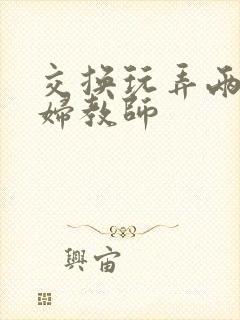 交换玩弄两
婦教師
興宙